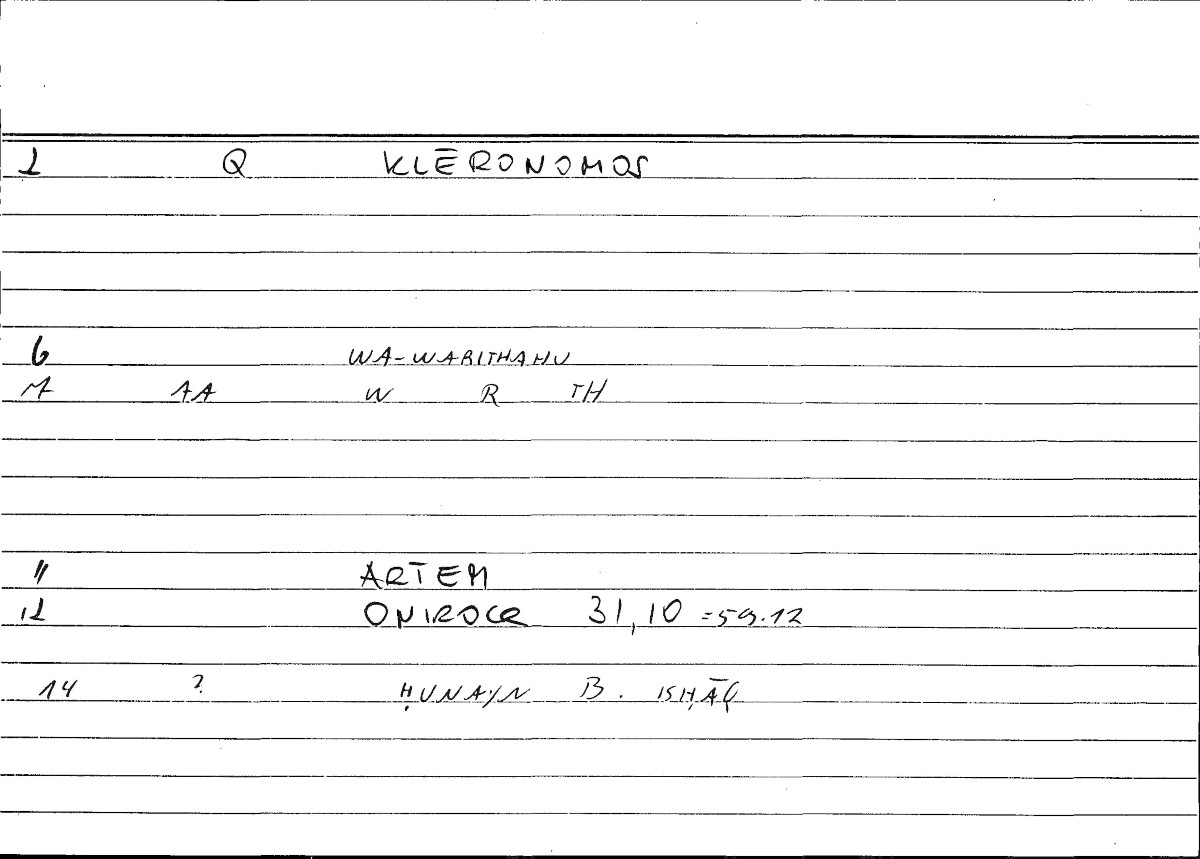 1 Q KLĒRONOMOS
6 WA-WARITHAHU
7 AA W R TH
11 ARTEM
12 ONIROCR 31,10 =59.12
14 ? ḤUNAYN B. ISḤĀQ